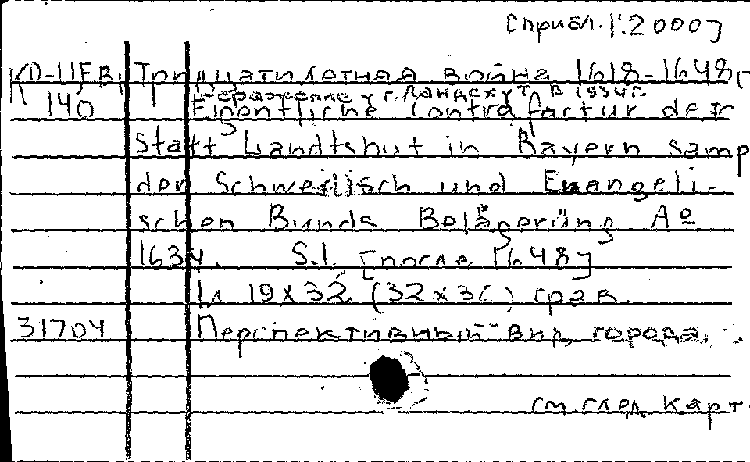 [Прибл. 1:2000]
КО-11ЕВ, Тридцатилетняя война 1618-1648г
Сражение у г. Ландсхут в 1634г.
140 Eigentliche Contrafactur der
Statt Landtshut in Bayern samp
der Schwedisch und Euangeli-
schen Bunds Belägerung Aº
1634. S.l. [после 1648]
1л 19х32 (32х36) грав.
31704 Перспективный вид города.
см. след. карт.